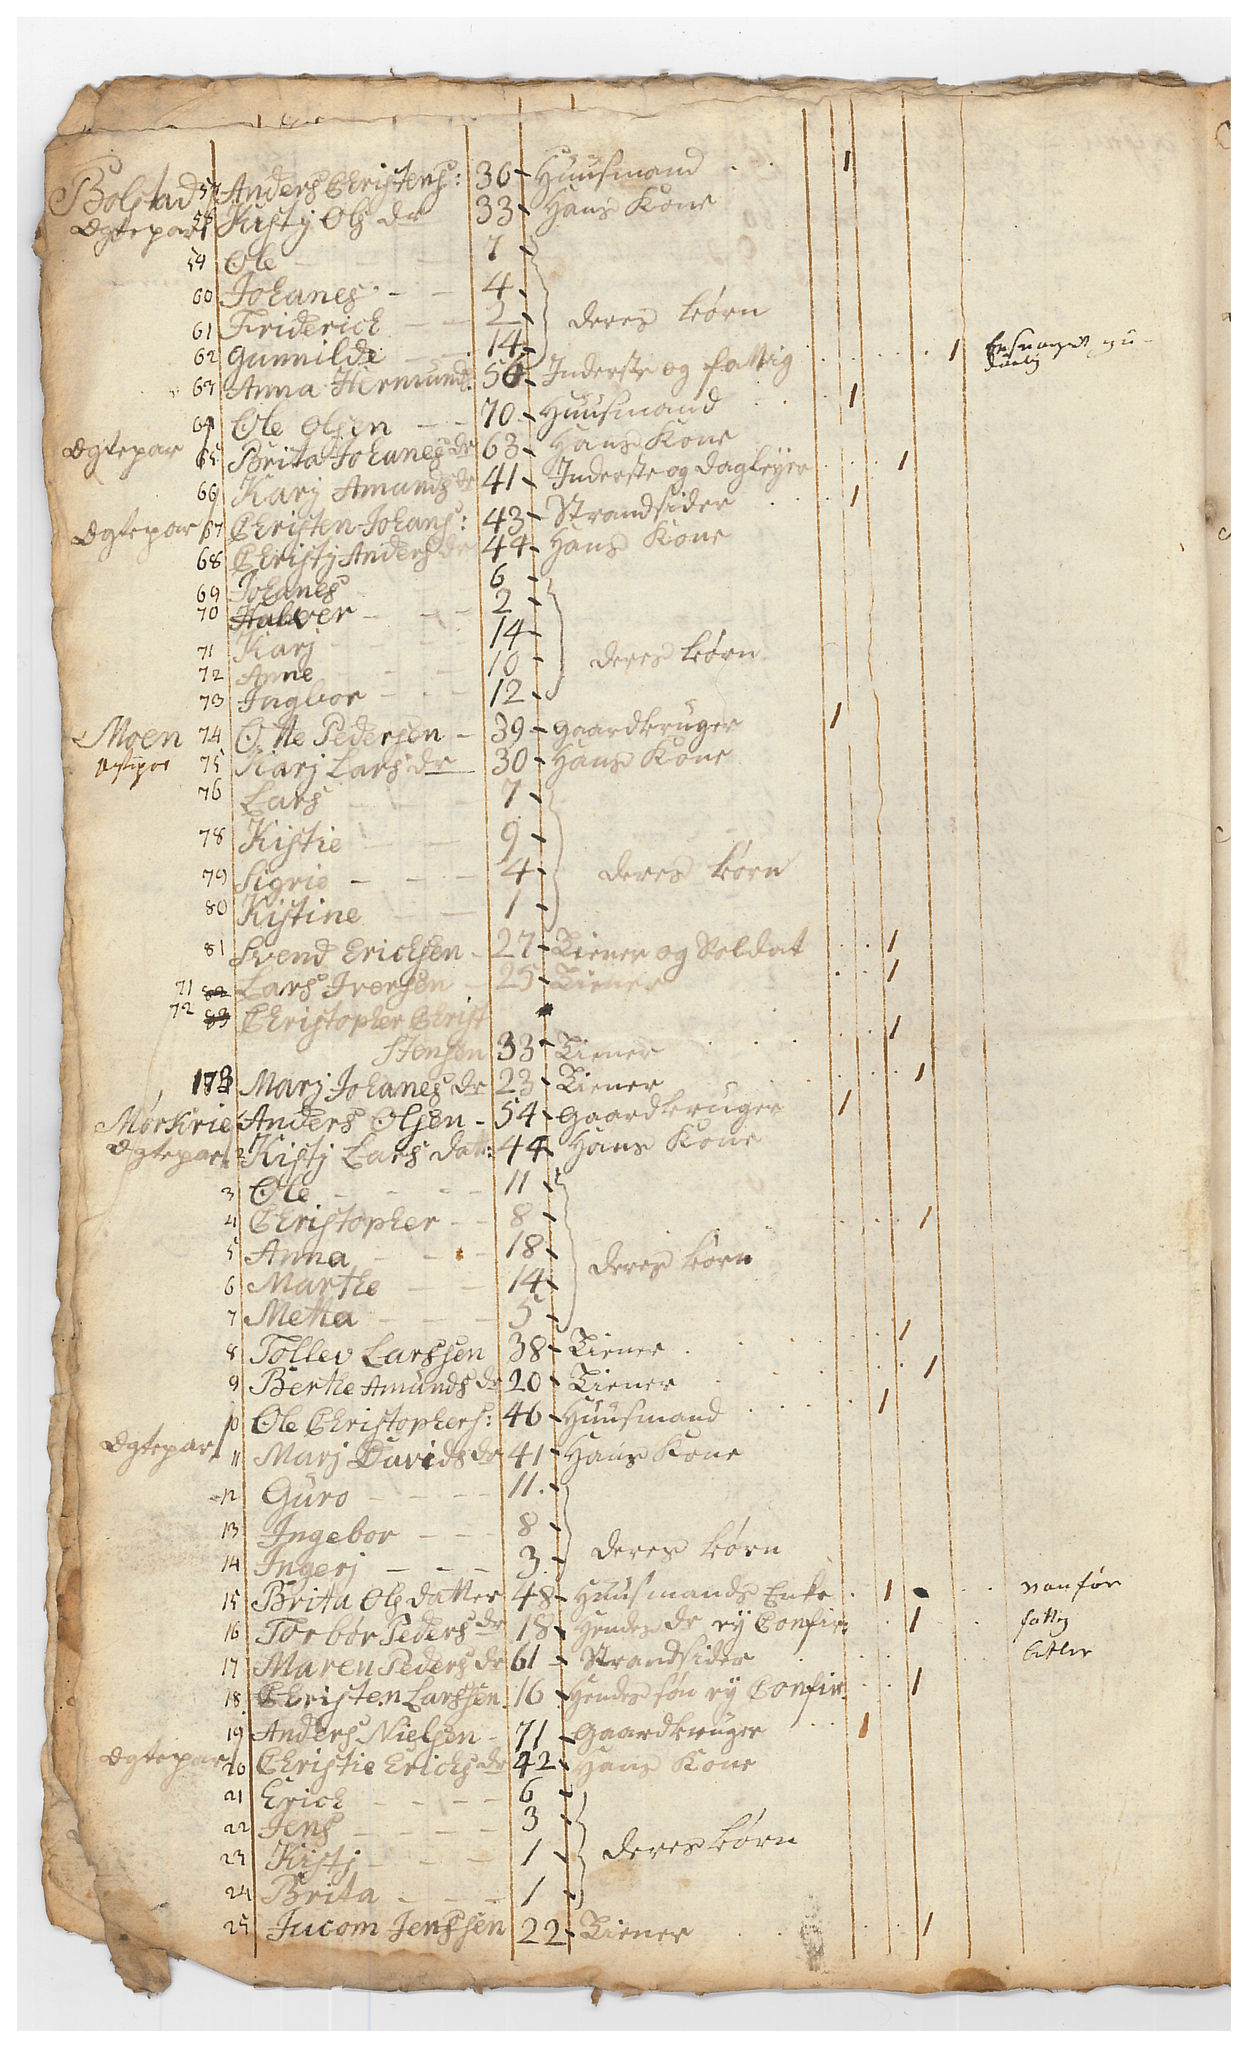 Bolstad 57 Anders Christens: 36 Huusmand 1
Ægtepar 58 Kistj Ols dr 33 Hans Kone
59 Ole 7
60 Johanes 4
61 Friderich 2 deres børn
62 Gunnilde 14
63 Anna Hermund 56 Inderste og fattig 1
64 Ole Olsen 70 Huusmand 1
Ægtepar 65 Brita Johanes dr 63 Hans Kone
66 Karj Amunds dr 41 Inderste og dagleyer 1
Ægtepar 67 Christen Johans: 43 Strandsider 1
68 Christj Anders dr 44 Hans Kone
69 Johanes 6
70 Halvor 2
71 Karj 14
72 Anne 10 deres børn
73 Ingbor 12
Moen 74 Otte Pedersen 39 gaardbruger 1
75 Karj Lars dr 30 Hans Kone
76 Lars 7
78 Kistie 9
79 Sigrie 4 deres børn
80 Kistine 1
81 Svend Erichsen 27 Tiener og Soldat 1
71 82 Lars Iversen 25 Tiener 1
72 83 Christopher Christ
stensen 33 Tiener 1
173 Marj Johanes dr 23 Tiener 1
Mørkrie Anders Olsen 54 gaardbruger 1
Ægtepar 2 Kistj Lars datt: 44 Hans Kone
3 Ole 11
4 Christopher 8 1
5 Anna 18 deres børn
6 Marthe 14
7 Metta 5
8 Tollev Larssen 38 Tiener 1
9 Berthe Amunds dr 20 Tiener 1
10 Ole Christophers: 46 Huusmand 1
Ægtepar 11 Marj Davids dr 41 Hans Kone
12 Guro 11
13 Ingebor 8 deres børn
14 Ingerj 3
15 Brita Ols datter 48 Huusmands Enke 1 vanfør
16 Torbør Peders dr 18 Hendes dr ey Confir: 1 fattig
17 Maren Peders dr 61 Strandsider
18 Christen Larssen 16 Hendes søn ey Confir. 1
19 Anders Nielsen 71 gaardbruger 1
Ægtepar 20 Christie Erichs dr 42 Hans Kone
21 Erich 6
22 Jens 3
23 Kistj 1 deres børn
24 Brita 1
25 Jucom Jenssen 22 Tiener 1